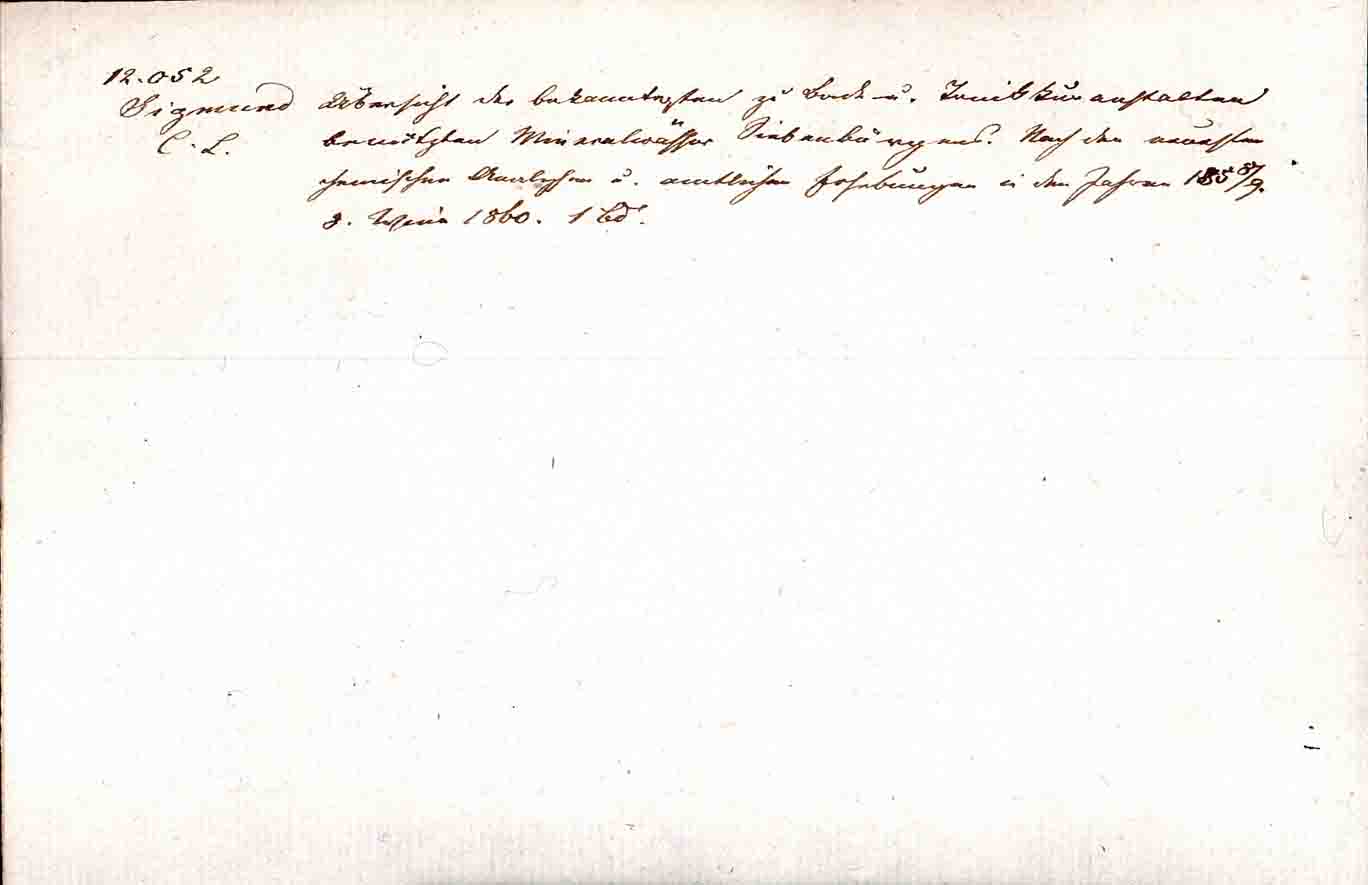 12.052
Sigmund Übersicht der bekanntesten zu Bade- u. Trinkkuranstalten
C. L. benützten Mineralwässer Siebenbürgens. Nach den neuesten
chemischen Analysen u. amtlichen Erhebungen in den Jahren 1858/9.
8. Wien 1860. 1 Bd.